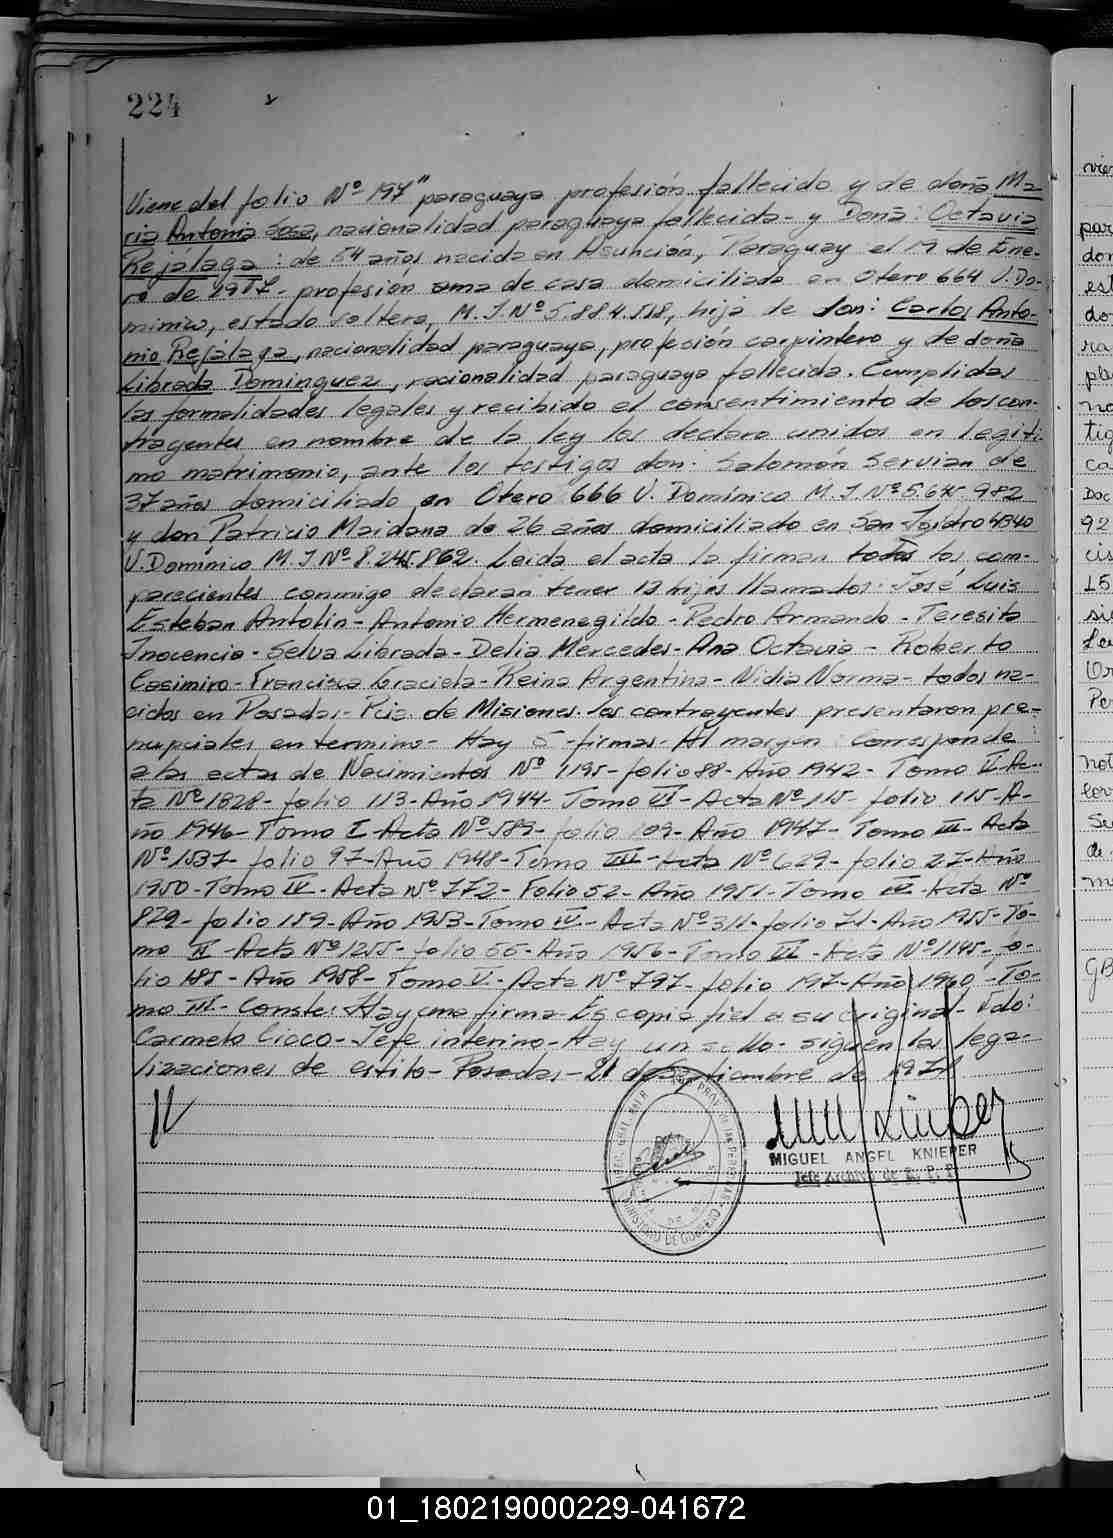 224
Viene del folio Nº 197" paraguaya profesión fallecido y de doña Ma-
ria Antonia Sosa, nacionalidad paraguaya fallecida - y Doña: Octavia
Rejálaga: de 54 años nacida en Asunción, Paraguay el 19 de Ene-
ro de profesion ama de casa domiciliada en Otero 664 V. Do-
minico, estado soltera, M. I. Nº 5.884.518, hija de don: Carlos Anto-
nio Rejálaga, nacionalidad paraguaya, profeción carpintero y de doña
Librada Dominguez, nacionalidad paraguaya fallecida. Cumplidas
las formalidades legales y recibido el consentimiento de los con-
trayentes en nombre de la ley los declaro unidos en legiti-
mo matrimonio, ante los testigos don: Salomón Servian de
37 años domiciliado en Otero 666 V. Domínico M. I. Nº 5.645.982
y don Patricio Maidana de 26 años domiciliado en San Isidro 4340
V. Domínico M. I Nº 8.245.862. Leida el acta la firman todos los com-
parecientes conmigo declaran tener 13 hijos llamados: José Luis
Esteban Antolin - Antonio Hermenegildo - Pedro Armando - Teresita
Inocencia - Selva Librada - Delia Mercedes - Ana Octavia - Roberto
Casimiro - Francisca Graciela - Reina Argentina - Nidia Norma - todos na-
cidos en Posadas - Pcia. de Misiones. los contrayentes presentaron pre-
nupciales en termino - Hay 5 - firmas - Al margen: Corresponde
a las actas de Nacimientos Nº 1195 - folio 88 - Año 1942 - Tomo V Ac-
ta Nº 1828 - folio 113 - Año 1944 - Tomo VI - Acta Nº 115 - folio 115 - A-
ño 1946 - Tomo I - Acta Nº 589 - folio 109 - Año 1947 - Tomo III - Acta
Nº 1537 - folio 97 - Año 1948 - Tomo - Acta Nº 629 - folio 27 - Año
1950 - Tomo IV - Acta Nº 772 - Folio 52 - Año 1951 - Tomo IV - Acta Nº
829 - folio 159 - Año 1953 - Tomo IV - Acta Nº 311 - folio 71 - Año 1955 - To-
mo II - Acta Nº 1255 - folio 55 - Año 1956 - Tomo - Acta Nº 1145 - fo-
lio 185 - Año 1958 - Tomo V - Acta Nº 797 - folio 197 - Año 1960 - To-
mo III - Conste: Hay una firma - Es copia fiel a su original - Fdo:
Carmelo Cioco - Jefe interino - Hay un sello - siguen las lega-
lizaciones de estilo - Posadas - 21 de Septiembre de 1971
MIGUEL ANGEL KNIEPER
Jefe Archivo de R. P. P.
01_180219000229-041672